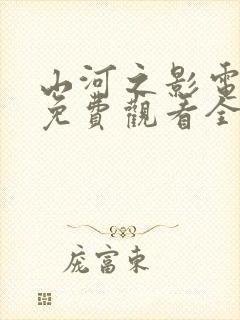 山河之影電
免費觀看全
庞富東